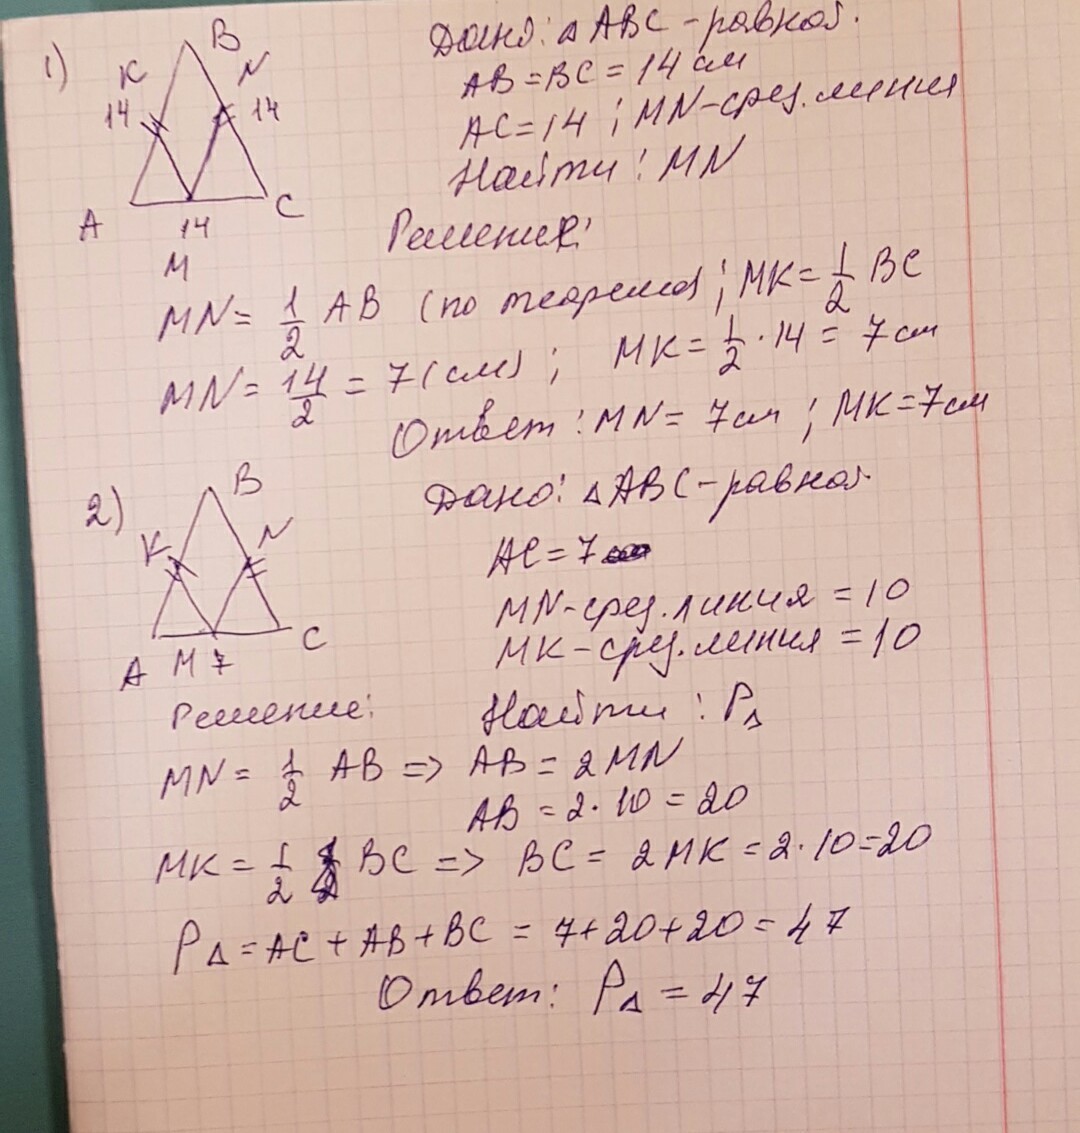 1)
B
K
N
14
14
A
C
14
M
Дано: △ABC - равноб.
AB = BC = 14 см
AC = 14 ; MN - сред. линия
Найти: MN
Решение:
MN = 1/2 AB (по теореме) ; MK = 1/2 BC
MN = 14/2 = 7 (см) ; MK = 1/2 · 14 = 7 см
Ответ: MN = 7 см ; MK = 7 см
2)
B
K
N
A M 7
C
Дано: △ABC - равноб.
AC = 7
MN - сред. линия = 10
MK - сред. линия = 10
Решение: Найти: P△
MN = 1/2 AB => AB = 2MN
AB = 2 · 10 = 20
MK = 1/2 BC => BC = 2MK = 2 · 10 = 20
P△ = AC + AB + BC = 7 + 20 + 20 = 47
Ответ: P△ = 47